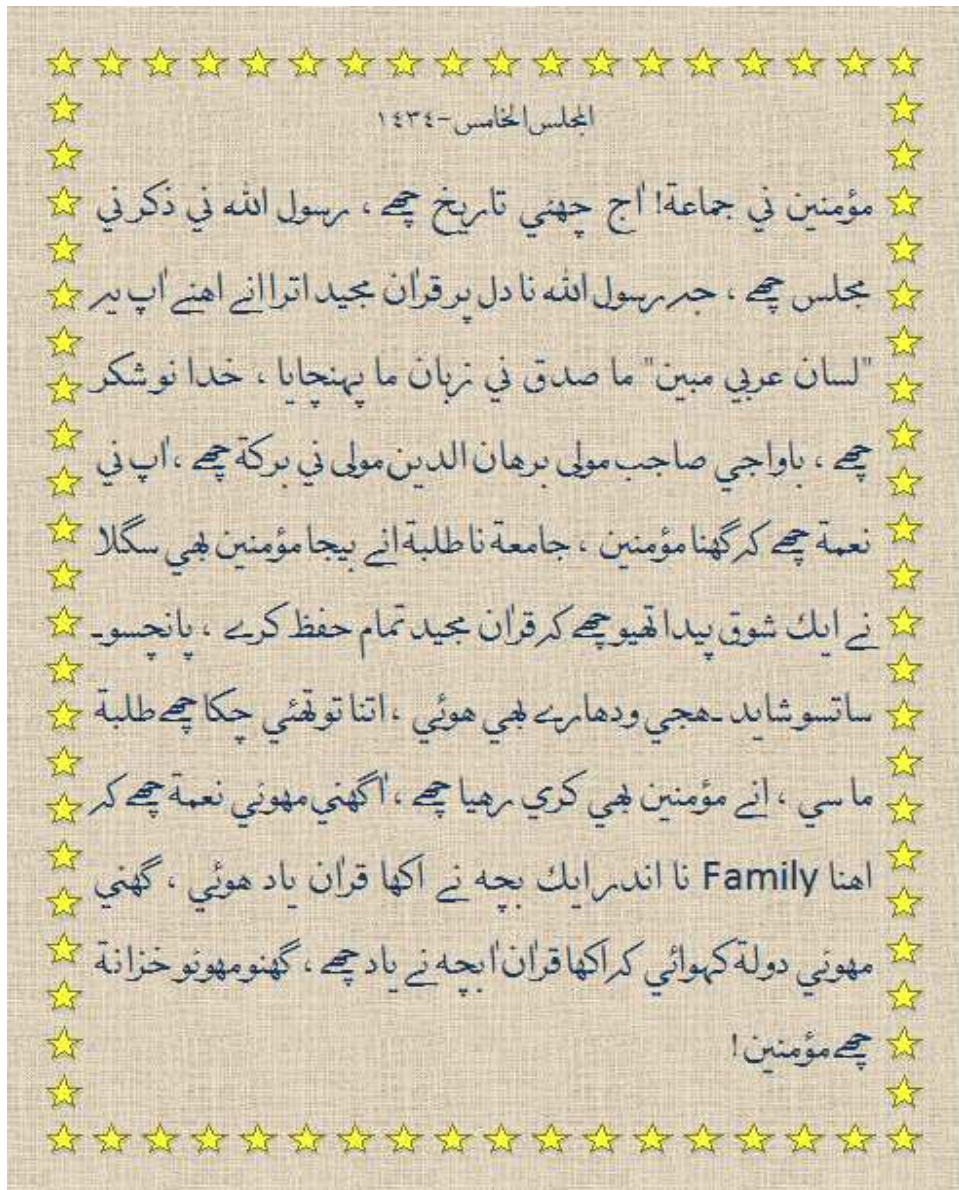 المجلس الخامس-١٤٣٤
مؤمنين ني جماعة! اٰج چھٹي تاريخ چھے ، رسول الله ني ذكر ني
مجلس چھے ، جہ رسول الله نا دل پر قراٰن مجيد اترا انے اهنے اٰپ يہ
"لسان عربي مبين" ما صدق ني زبان ما پهنچايا ، خدا نو شكر
چھے ، باواجي صاحب مولى برهان الدين مولى ني بركة چھے ، اٰپ ني
نعمة چھے كہ گھنا مؤمنين ، جامعة نا طلبة انے بيجا مؤمنين بھي سگلا
نے ايك شوق پيدا تھيو چھے كہ قراٰن مجيد تمام حفظ كرے ، پانچسو-
ساتسو شايد -هجي ودهارے بھي هوئي ، اتنا تو تھئي چكا چھے طلبة
ما سي ، انے مؤمنين بھي كري رهيا چھے ، اٰ گھني مهوٹي نعمة چھے كہ
اهنا Family نا اندر ايك بچہ نے اكھا قراٰن ياد هوئي ، گھني
مهوٹي دولة كہوائي كہ اكھا قراٰن اٰ بچہ نے ياد چھے ، گھنو مهوٹو خزانة
چھے مؤمنين!